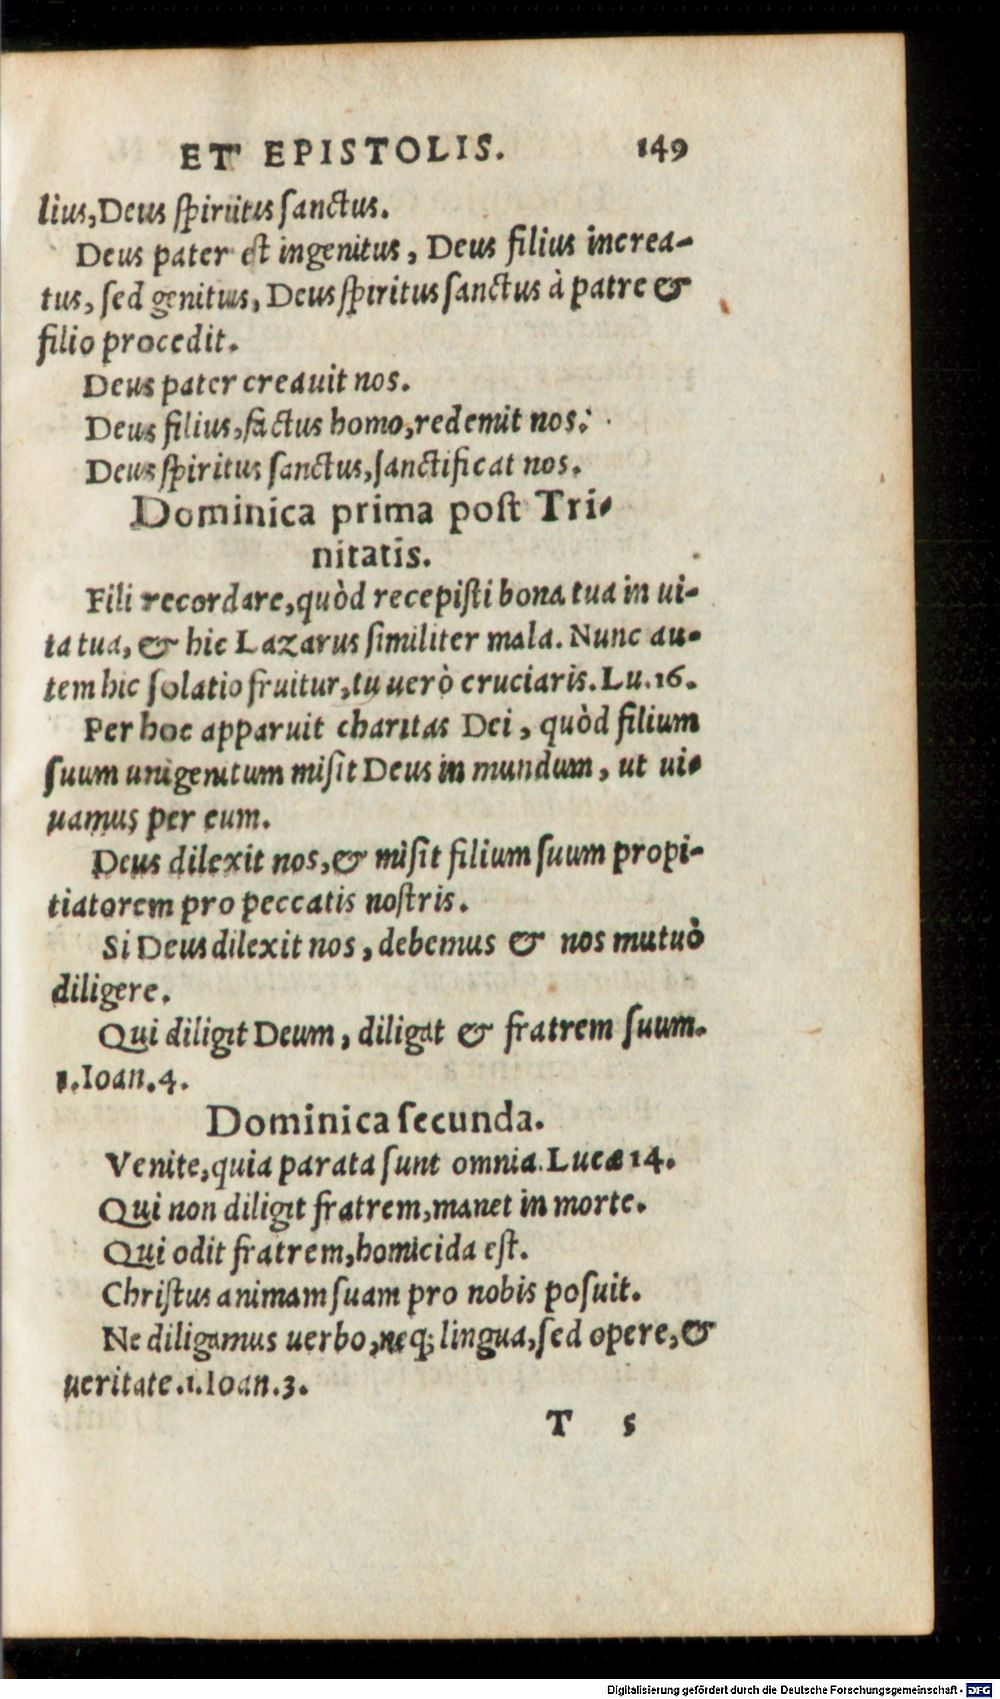 ET EPISTOLIS. 149
lius, Deus ſpiritus ſanctus.
Deus pater eſt ingenitus, Deus filius increa-
tus, ſed genitus, Deus ſpiritus ſanctus à patre &
filio procedit.
Deus pater creauit nos.
Deus filius, factus homo, redemit nos.
Deus ſpiritus ſanctus, ſanctificat nos.
Dominica prima poſt Tri-
nitatis.
Fili recordare, quòd recepiſti bona tua in ui-
ta tua, & hic Lazarus ſimiliter mala. Nunc au-
tem hic ſolatio fruitur, tu uerò cruciaris. Lu. 16.
Per hoc apparuit charitas Dei, quòd filium
ſuum unigenitum miſit Deus in mundum, ut ui-
uamus per eum.
Deus dilexit nos, & miſit filium ſuum propi-
tiatorem pro peccatis noſtris.
Si Deus dilexit nos, debemus & nos mutuò
diligere.
Qui diligit Deum, diligat & fratrem ſuum.
1. Ioan. 4.
Dominica ſecunda.
Venite, quia parata ſunt omnia. Lucæ 14.
Qui non diligit fratrem, manet in morte.
Qui odit fratrem, homicida eſt.
Chriſtus animam ſuam pro nobis poſuit.
Ne diligamus uerbo, neq; lingua, ſed opere, &
ueritate. 1. Ioan. 3.
T 5
Digitalisierung gefördert durch die Deutsche Forschungsgemeinschaft - DFG